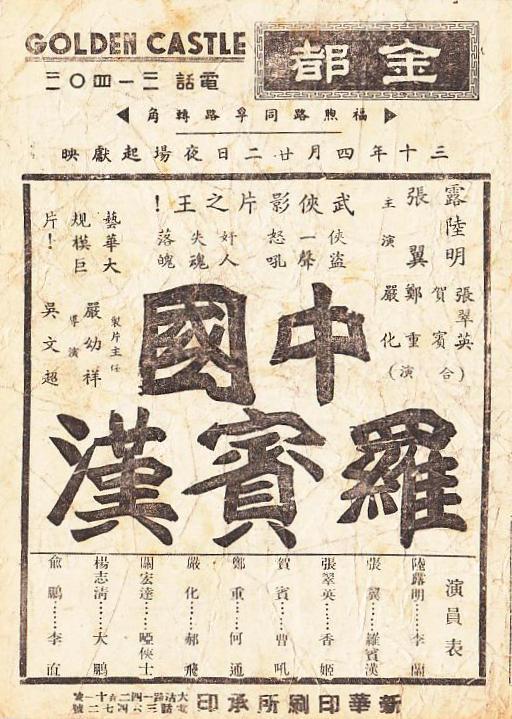 GOLDEN CASTLE
金都
電話三一四〇二
福煦路同孚路轉角
三十年四月廿二日夜場起獻映
武俠影片之王！
俠盜一聲怒吼
奸人失魂落魄
主演
張翼
陸露明
張翠英
賀賓
鄭重
嚴化
（合演）
藝華大規模巨片！
製片主任
嚴幼祥
導演
吳文超
中國
羅賓漢
演員表
陸露明……李蘭
張翼……羅賓漢
張翠英……香姬
賀賓……曹吼
鄭重……何通
嚴化……郝飛
關宏達……啞俠士
楊志清……大鵬
俞鵬……李直
新華印刷所承印